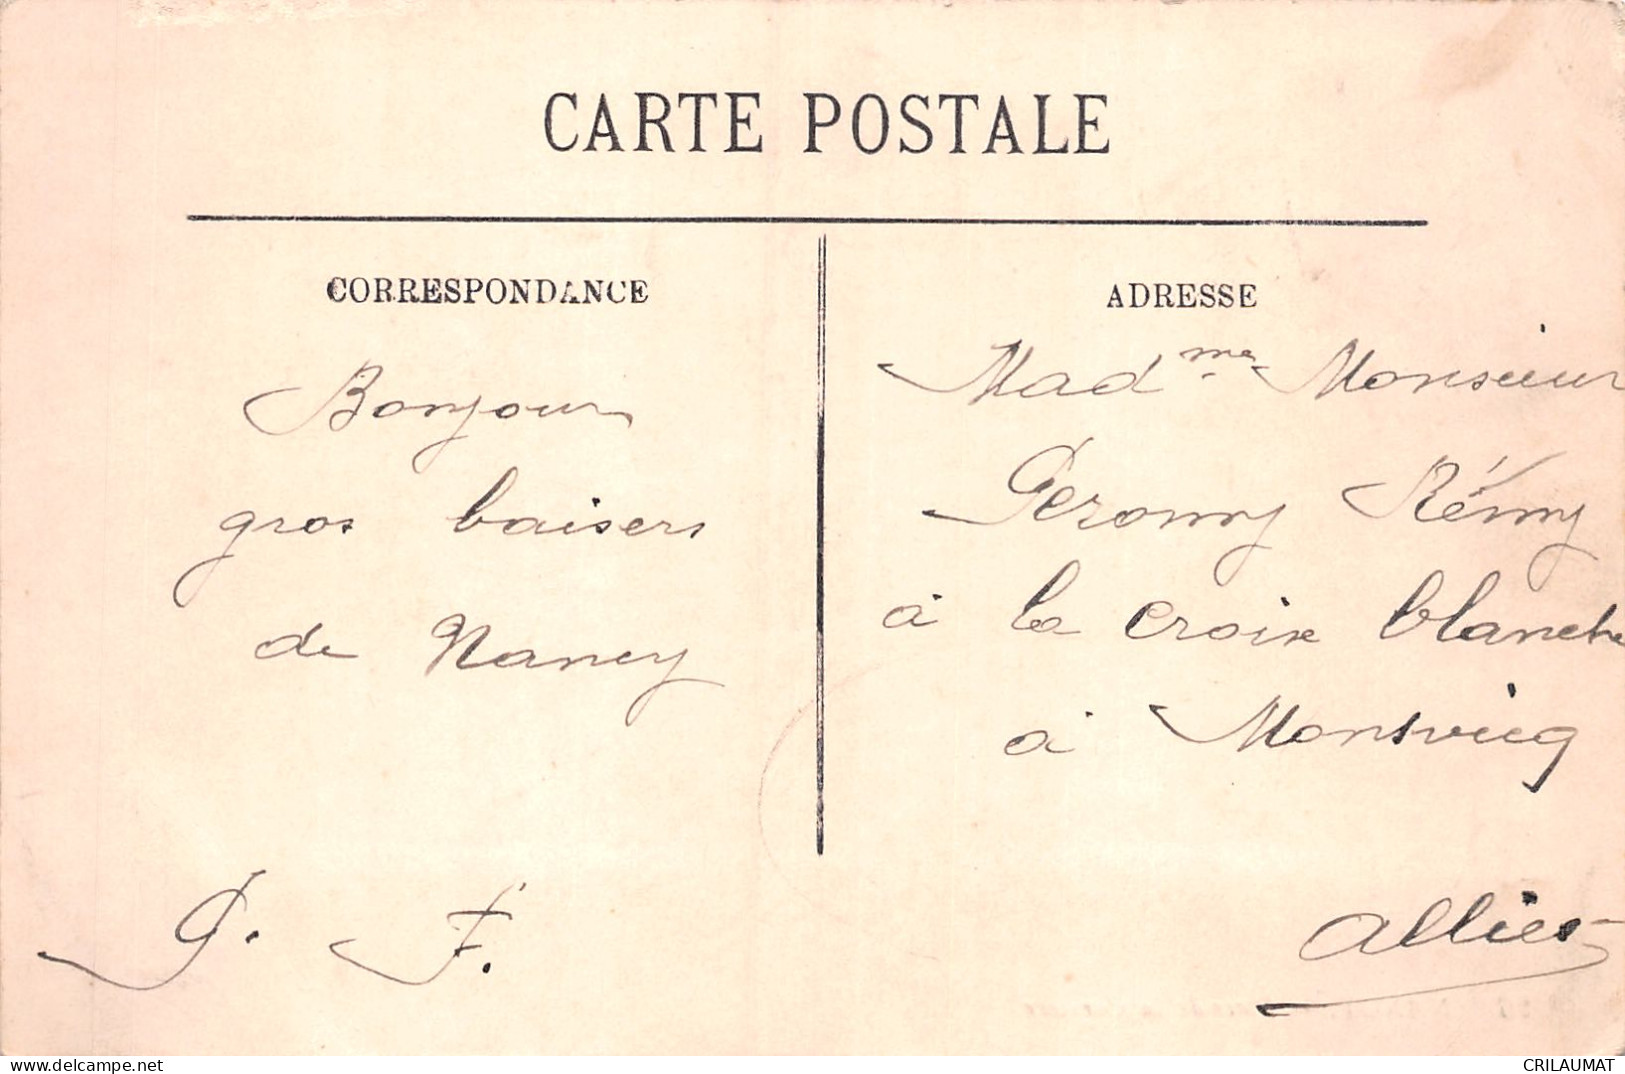 CARTE POSTALE
CORRESPONDANCE
Bonjour
gros baisers
de Nancy
J. F.
ADRESSE
Madme Monsieur
Geromy Rémy
à la Croix blanche
à Monsvicq
Allier
CRILAUMAT